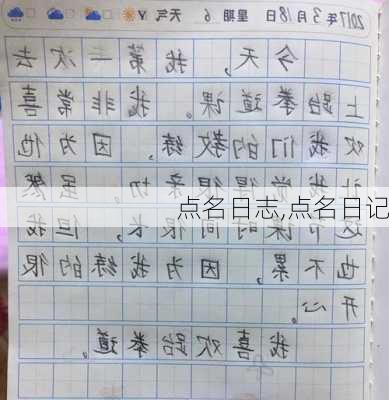 2017年3月18日 星期 6 天气
今天,我第二次去
上跆拳道课。我非常喜
欢我们的教练,因为他
让我觉得很亲切。虽然
点名日志,点名日记
这节课时间很长,但我
也不累,因为我练的很
开心。
我喜欢跆拳道。